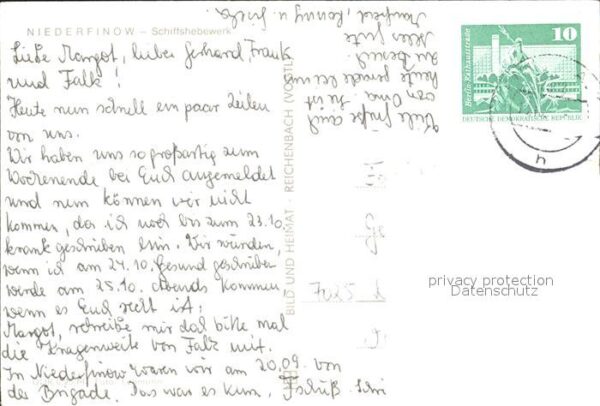 NIEDERFINOW – Schiffshebewerk
Liebe Margot, lieber Gerhard, Frank
und Falk!
Heute nun schnell ein paar Zeilen
von uns.
Wir haben uns so großartig zum
Wochenende bei Euch angemeldet
und nun können wir nicht
kommen, da ich noch bis zum 23.10.
krank geschrieben bin. Wir würden,
wenn ich am 24.10. Gesund geschrieben
werde am 25.10. abends kommen
wenn es Euch recht ist.
Margot, schreibe mir doch bitte mal
die Kragenweite von Falk mit.
In Niederfinow waren wir am 20.09. von
der Brigade. Das war es kurz. Tschüß
Viele Grüße auch
von Oma, sie ist
heute gerade bei uns
zu Besuch.
Alles Gute
Manfred, u.
BILD UND HEIMAT - REICHENBACH (VOGTL)
10
Berlin, Rathausstraße
DEUTSCHE DEMOKRATISCHE REPUBLIK
7025
privacy protection
Datenschutz